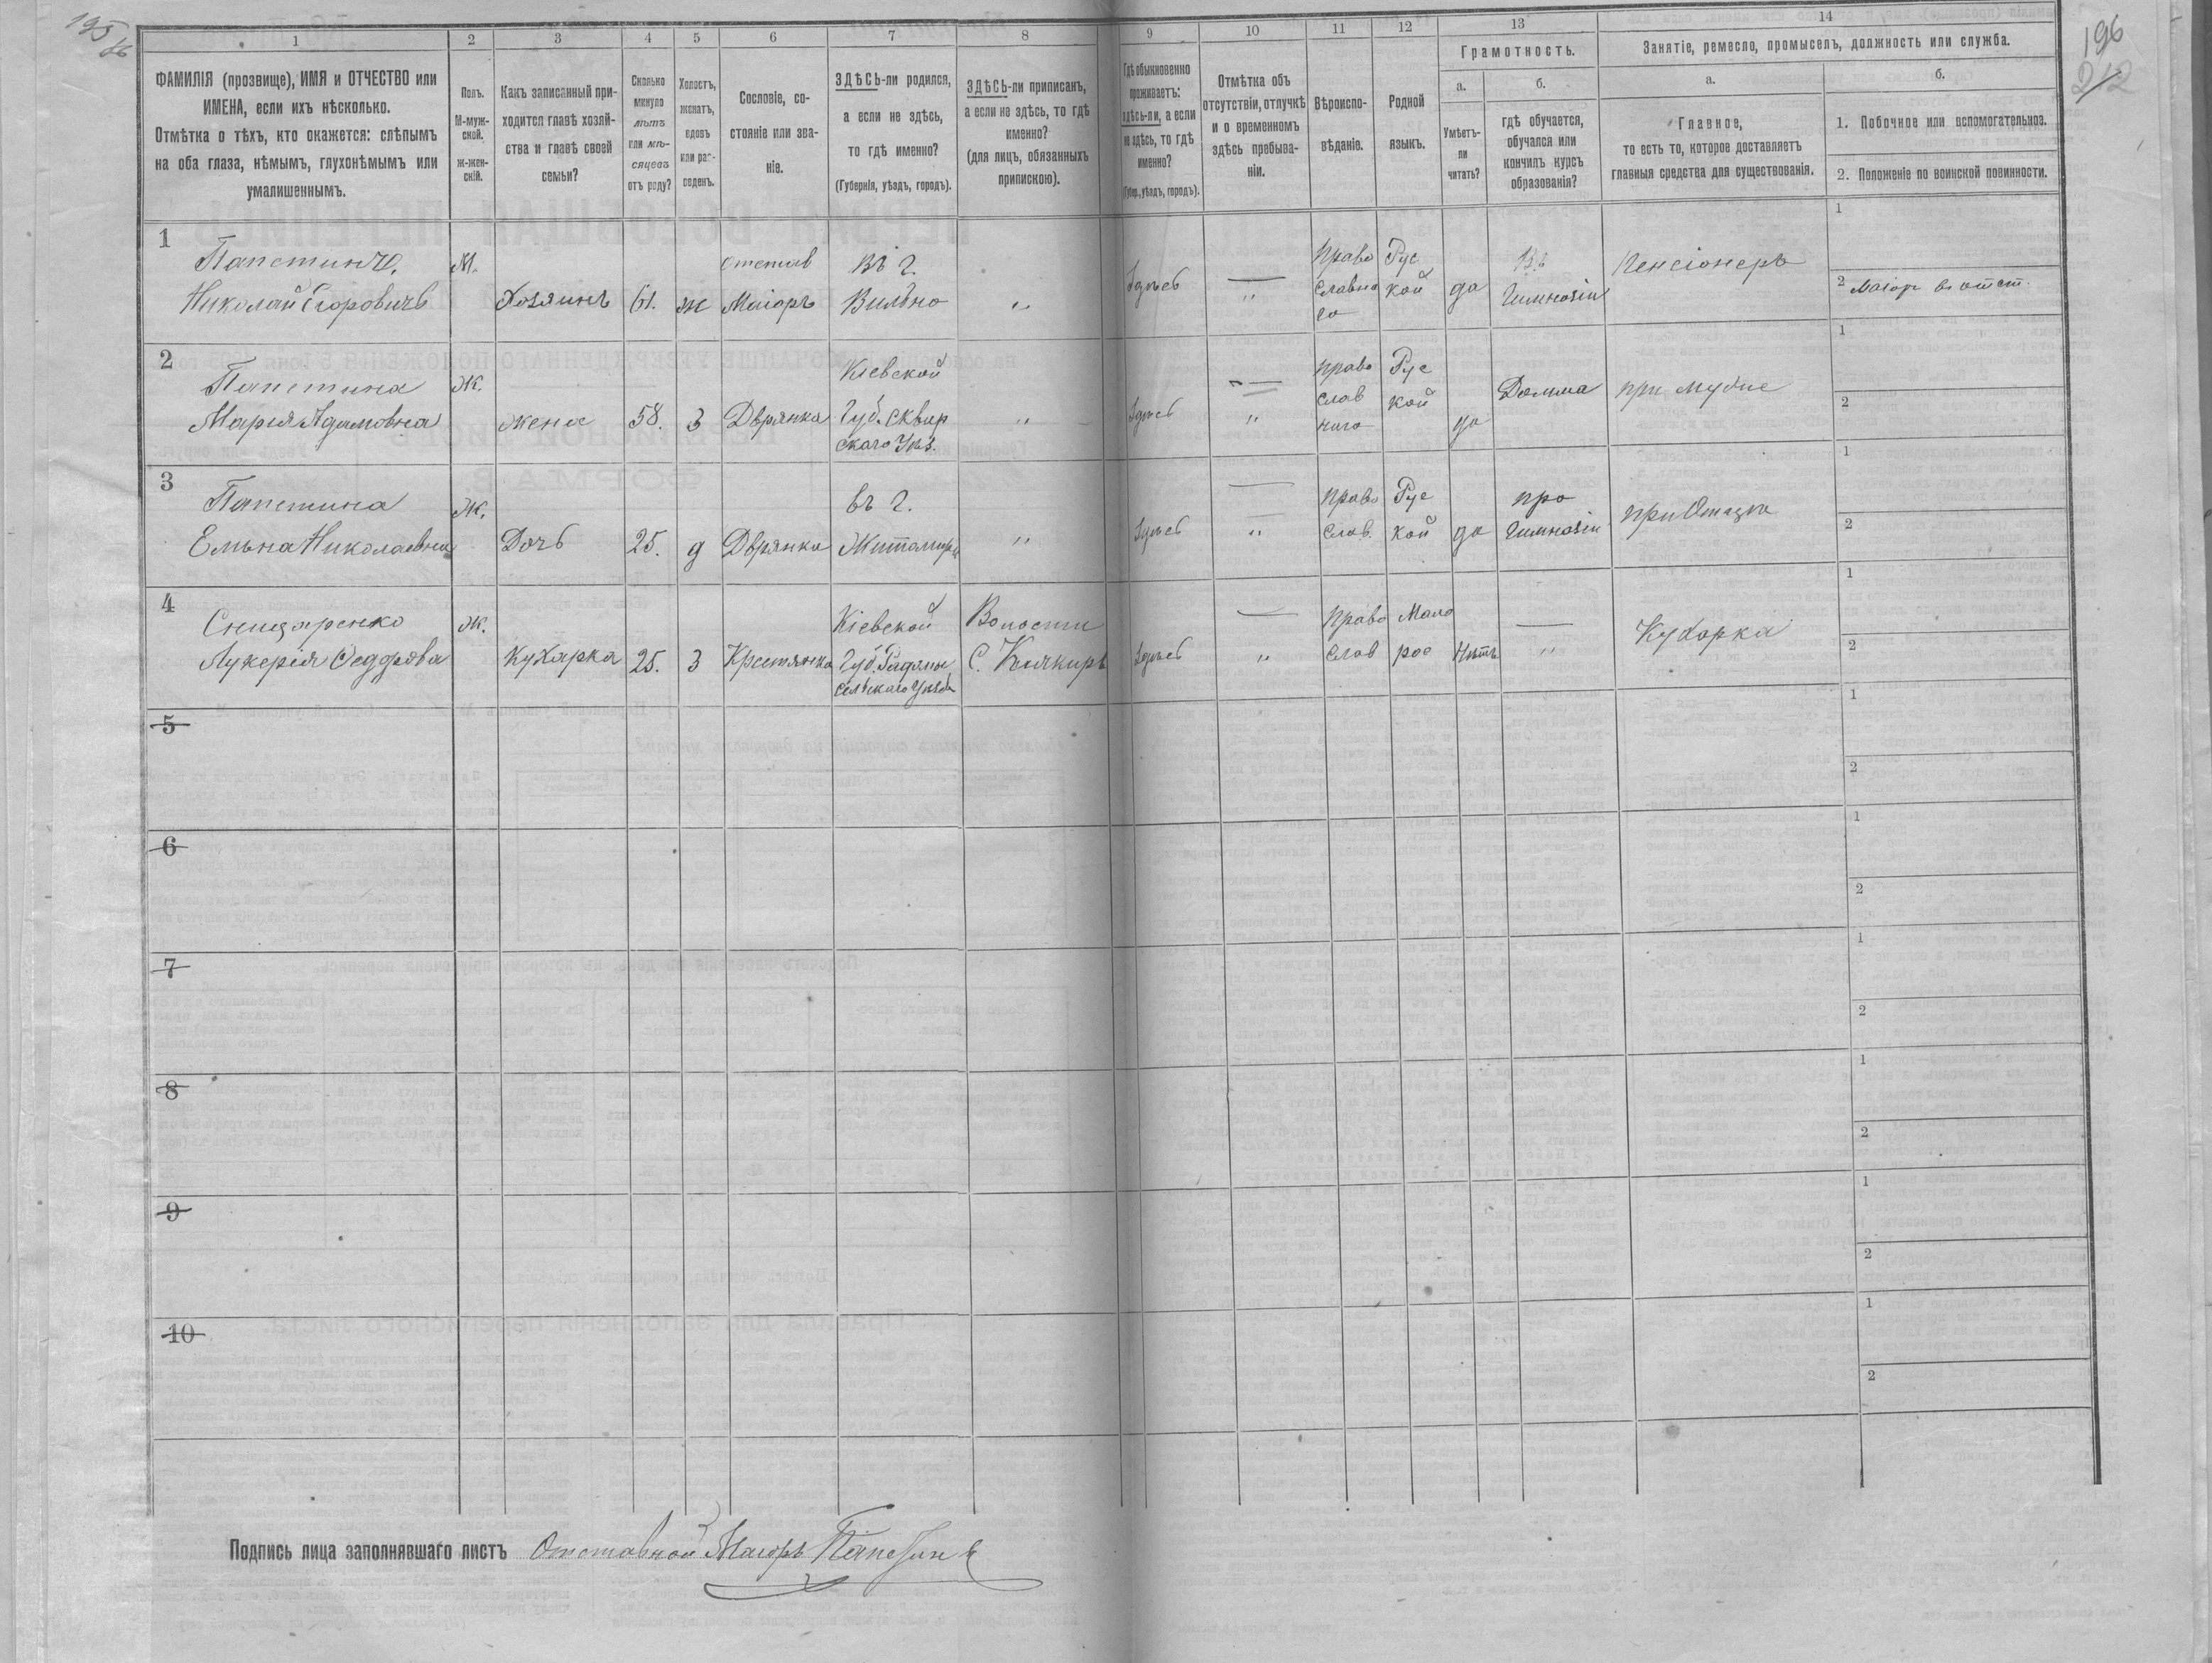 195
об
196
212
1
2
3
4
5
6
7
8
9
10
11
12
13
14
ФАМИЛІЯ (прозвище), ИМЯ и ОТЧЕСТВО или
ИМЕНА, если ихъ нѣсколько.
Отмѣтка о тѣхъ, кто окажется: слѣпымъ
на оба глаза, нѣмымъ, глухонѣмымъ или
умалишеннымъ.
Полъ.
М-муж-
ской.
ж-жен-
скій.
Какъ записанный при-
ходится главѣ хозяй-
ства и главѣ своей
семьи?
Сколько
минуло
лѣтъ
или мѣ-
сяцевъ
отъ роду?
Холостъ,
женатъ,
вдовъ
или раз-
веденъ.
Сословіе, со-
стояніе или зва-
ніе.
ЗДѢСЬ-ли родился,
а если не здѣсь,
то гдѣ именно?
(Губернія, уѣздъ, городъ).
ЗДѢСЬ-ли приписанъ,
а если не здѣсь, то гдѣ
именно?
(для лицъ, обязанныхъ
припискою).
Гдѣ обыкновенно
проживаетъ:
здѣсь-ли, а если
не здѣсь, то гдѣ
именно?
(Губер., уѣздъ, городъ).
Отмѣтка объ
отсутствіи, отлучкѣ
и о временномъ
здѣсь пребыва-
ніи.
Вѣроиспо-
вѣданіе.
Родной
языкъ.
Грамотность.
а.
Умѣетъ-
ли
читать?
б.
гдѣ обучается,
обучался или
кончилъ курсъ
образованія?
Занятіе, ремесло, промыселъ, должность или служба.
а.
Главное,
то есть то, которое доставляетъ
главныя средства для существованія.
б.
1. Побочное или вспомогательное.
2. Положеніе по воинской повинности.
1
Папстинъ,
Николай Егоровичъ
М.
Хозяинъ
61.
ж
отстав
Маіоръ
въ г.
Вильно
"
Здѣсь
— "
Право
славна
го
Рус
кой
да
Въ
Гимназіи
Пенсіонеръ
1
2 Маіоръ въ отст.
2
Папстина
Марія Адамовна
Ж.
жена
58.
З
Дврянка
Кіевской
Губ. Сквир
скаго Уѣз.
"
Здѣсь
— "
право
слав
наго
Рус
кой
да
Домма
при мужие
1
2
3
Папстина
Елѣна Николаевна
Ж.
Дочь
25.
д
Дврянка
въ г.
Житомирѣ
"
Здѣсь
— "
Право
Слав.
Рус
кой
да
про
Гимназіи
при Отцѣ
1
2
4
Снищаренко
Лукерія Федорова
Ж.
Кухарка
25.
З
Крестянка
Кіевской
Губ. Радомы
сельскаго Уѣзда
Волости
С.
Здѣсь
— "
Право
Слав
Мало
рос
Нѣтъ
— "
Кухарка
1
2
5
1
2
6
1
2
7
1
2
8
1
2
9
1
2
10
1
2
Подпись лица заполнявшаго листъ Отставной Маіоръ Папстинъ